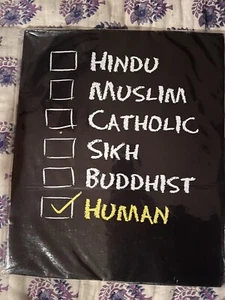 HINDU
MUSLIM
CATHOLIC
SIKH
BUDDHIST
HUMAN